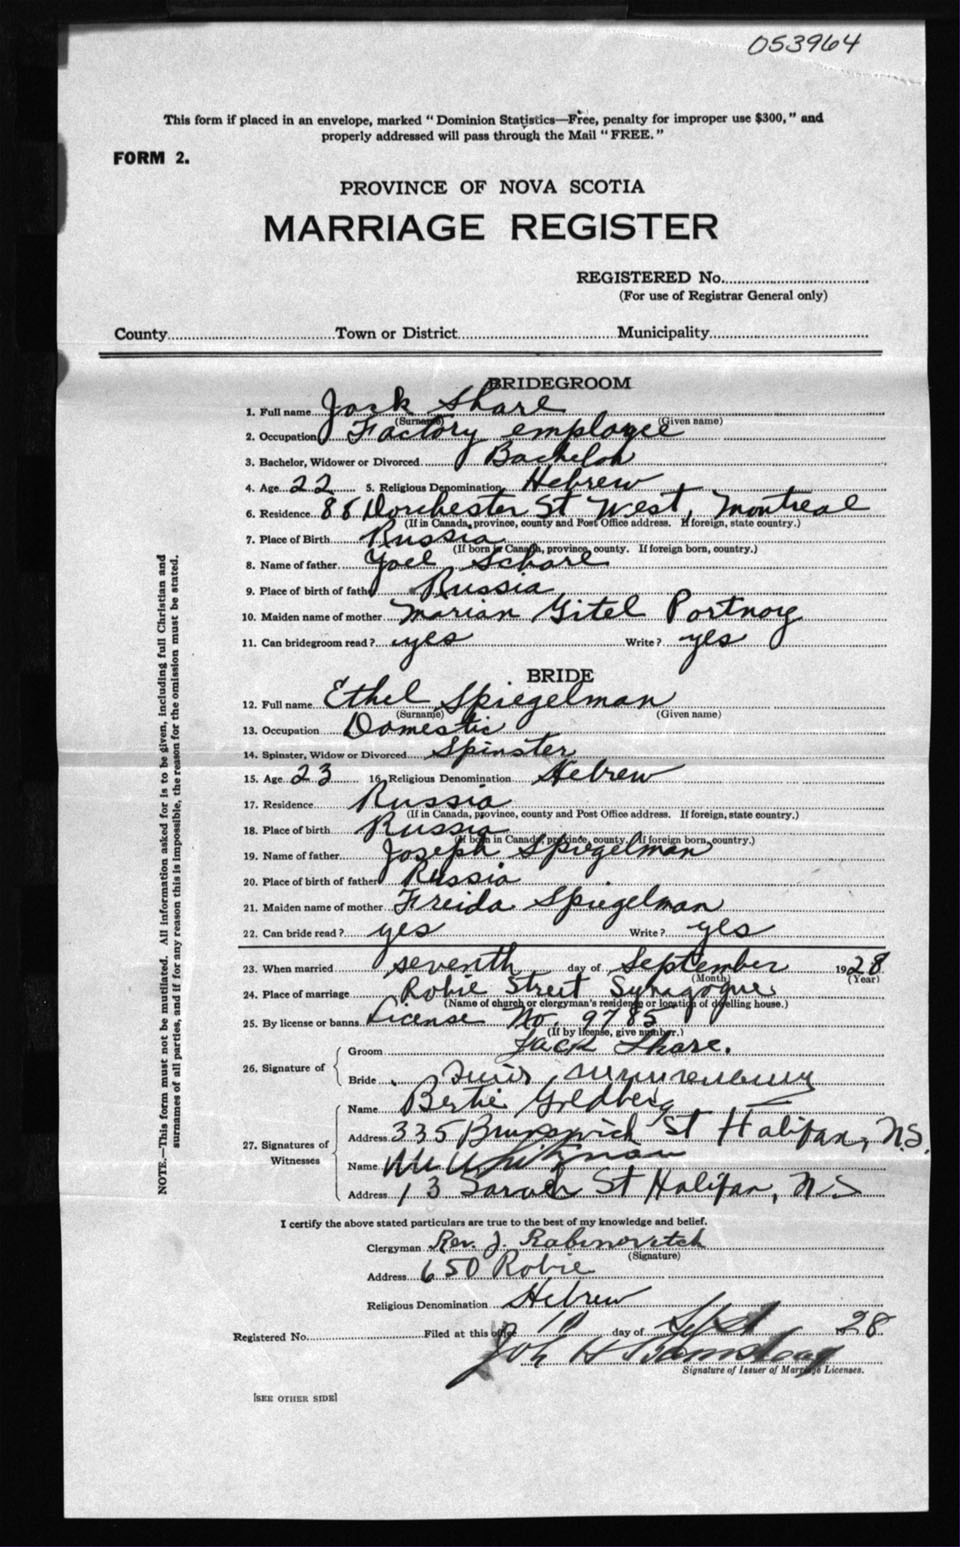 053964
This form if placed in an envelope, marked "Dominion Statistics—Free, penalty for improper use $300," and
properly addressed will pass through the Mail "FREE."
FORM 2.
PROVINCE OF NOVA SCOTIA
MARRIAGE REGISTER
REGISTERED No.
(For use of Registrar General only)
County Town or District Municipality
BRIDEGROOM
1. Full name Jack Share
(Surname) (Given name)
2. Occupation Factory employee
3. Bachelor, Widower or Divorced Bachelor
4. Age 22 5. Religious Denomination Hebrew
6. Residence 88 Dorchester St West, Montreal
(If in Canada, province, county and Post Office address. If foreign, state country.)
7. Place of Birth Russia
(If born in Canada, province, county. If foreign born, country.)
8. Name of father Yoel Schare
9. Place of birth of father Russia
10. Maiden name of mother Marian Gitel Portnoy
11. Can bridegroom read? yes Write? yes
BRIDE
12. Full name Ethel Spiegelman
(Surname) (Given name)
13. Occupation Domestic
14. Spinster, Widow or Divorced Spinster
15. Age 23 16. Religious Denomination Hebrew
17. Residence Russia
(If in Canada, province, county and Post Office address. If foreign, state country.)
18. Place of birth Russia
(If born in Canada, province, county. If foreign born, country.)
19. Name of father Joseph Spiegelman
20. Place of birth of father Russia
21. Maiden name of mother Freida Spiegelman
22. Can bride read? yes Write? yes
23. When married seventh day of September 1928
(Month) (Year)
24. Place of marriage Robie Street Synagogue
(Name of church or clergyman's residence or location of dwelling house.)
25. By license or banns License No. 9785
(If by license, give number.)
26. Signature of
Groom Jack Share.
Bride
27. Signatures of Witnesses
Name Bertie Goldberg
Address 335 Brunswick St Halifax, N.S.
Name Whitman
Address 13 Sarah St Halifax, N S
I certify the above stated particulars are true to the best of my knowledge and belief.
Clergyman Rev. J. Rabinovitch
(Signature)
Address 650 Robie
Religious Denomination Hebrew
Registered No. Filed at this office 10 day of Sept 1928
Joh H
Signature of Issuer of Marriage Licenses.
[SEE OTHER SIDE]
NOTE.—This form must not be mutilated. All information asked for is to be given, including full Christian and
surnames of all parties, and if for any reason this is impossible, the reason for the omission must be stated.